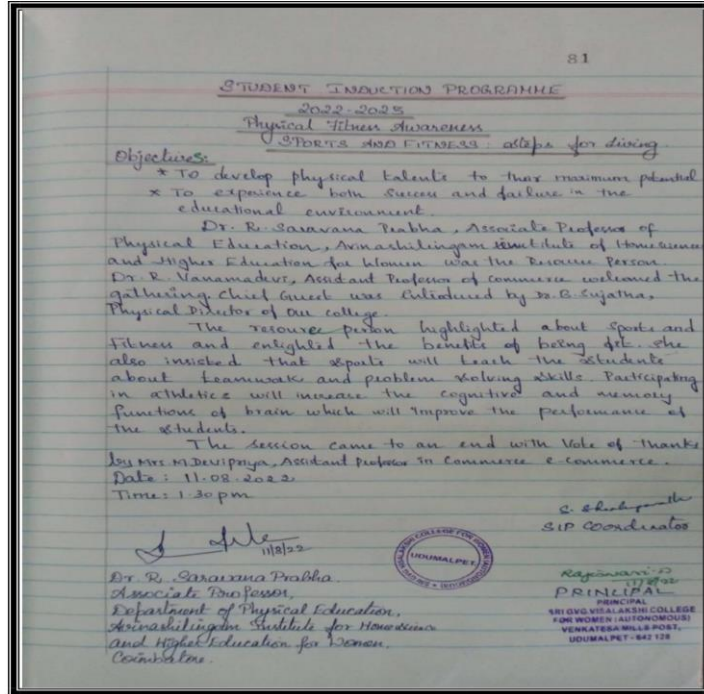 81
STUDENT INDUCTION PROGRAMME
2022-2023
Physical Fitness Awareness
SPORTS AND FITNESS: steps for Living
Objectives:
* To develop physical talents to thar maximum potential
* To experience both success and failure in the
educational environment.
Dr. R. Saravana Prabha, Associate Professor of
Physical Education, Avinashilingam institute of Homescience
and Higher Education for Women was the Resource Person.
Dr. R. Vanamadevi, Assistant Professor of commerce welcomed the
gathering. Chief Guest was introduced by Dr. B. Sujatha,
Physical Director of our college.
The resource person highlighted about sports and
Fitness and enlighted the benefits of being fit. She
also insisted that sports will teach the students
about teamwork and problem solving skills. Participating
in athletics will increase the cognitive and memory
functions of brain which will improve the performance of
the students.
The session came to an end with Vote of thanks
by Mrs. M. Devipriya, Assistant professor in Commerce e-commerce.
Date: 11.08.2022
Time: 1.30pm
SIP Coordinator
11/8/22
UDUMALPET
Dr. R. Saravana Prabha.
Associate Professor,
Department of Physical Education,
Avinashilingam Institute for Homescience
and Higher Education for Women,
Coimbatore.
Rajeswari
PRINCIPAL
PRINCIPAL
SRI GVG VISALAKSHI COLLEGE
FOR WOMEN (AUTONOMOUS)
VENKATESA MILLS POST,
UDUMALPET - 642 128